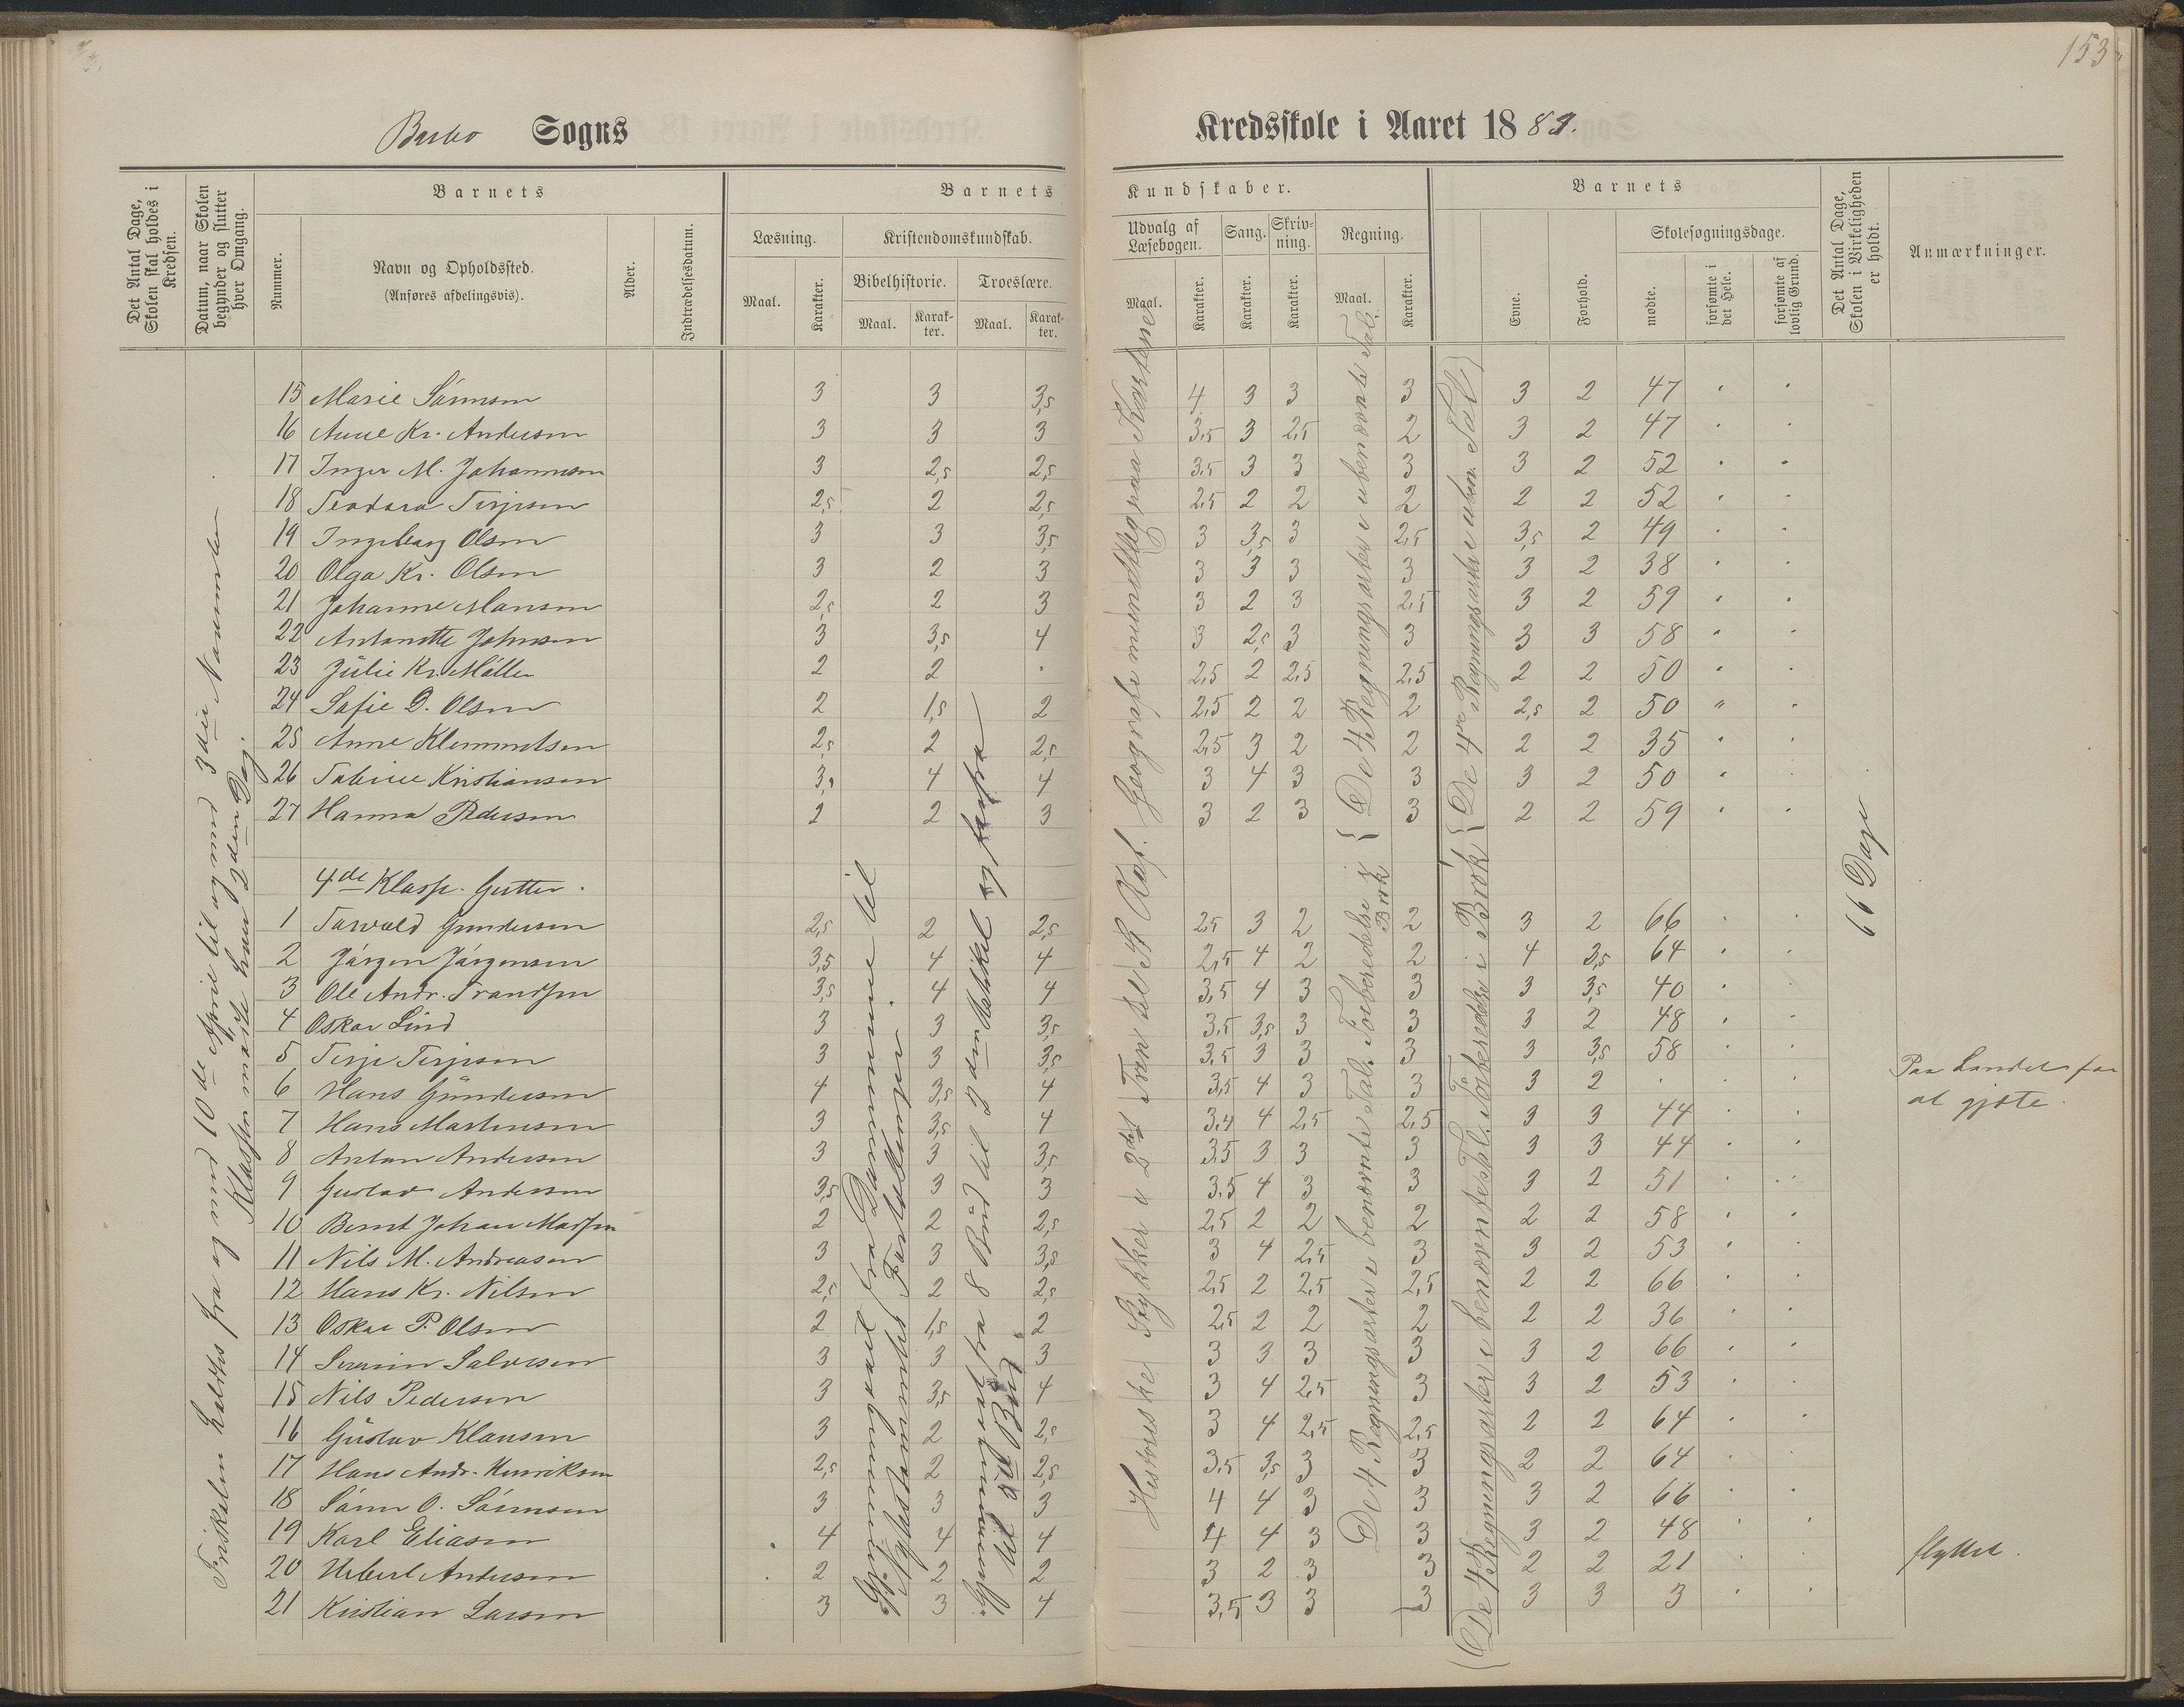 153
Barbo Sogns Kredsskole i Aaret 1889.
Det Antal Dage, Skolen skal holdes i Kredsen.
Datum, naar Skolen begynder og slutter hver Omgang.
Barnets
Nummer.
Navn og Opholdssted.
(Anføres afdelingsvis).
Alder.
Indtrædelsesdatum.
Barnets Kundskaber.
Læsning.
Maal.
Karakter.
Kristendomskundskab.
Bibelhistorie.
Maal.
Karakter.
Troeslære.
Maal.
Karakter.
Udvalg af Læsebogen.
Maal.
Karakter.
Sang.
Karakter.
Skrivning.
Karakter.
Regning.
Maal.
Karakter.
Barnets
Evne.
Forhold.
Skolesøgningsdage.
mødte.
forsømte i det Hele.
forsømte af lovlig Grund.
Det Antal Dage, Skolen i Virkeligheden er holdt.
Anmærkninger.
holdtes fra og med 10de April til og med 3die November
Klassen mødte hver 2den Dag.
Gjennemgaaet og
Nytestamentlige Fortællinger
Gjennemgaaet af 8 Bud til 2den Artikel og
Historiske Stykker i 2det Trin Geografi mundtlig paa Karterne
De 4 Regningsarter i ubenævnte Tal
De 4 Regningsarter i benævnte Tal. Forberedelse i Brøk
De 4re Regningsarter i uben. Tal
De 4 Regningsarter i benævnte Tal. Forberedelse i Brøk
66 Dage
15 Marie Sørensen 3 3 3,5 4 3 3 3 3 2 47
16 Anne Kr. Andersen 3 3 3 3,5 3 2,5 2 3 2 47
17 Inger M. Johannesen 3 2,5 2,5 3,5 3 3 3 3 2 52
18 Teodora Terjesen 2,5 2 2,5 2,5 2 2 2 2 2 52
19 Ingeborg Olsen 3 3 3,5 3 3,5 3 2,5 3,5 2 49
20 Olga Kr. Olsen 3 2 3 3 3 3 3 3 2 38
21 Johanne Hansen 2,5 2 3 3 2 3 2,5 3 2 59
22 Antonette Johnsen 3 3,5 4 3 2,5 3 3 3 3 58
23 Julie Kr. Møller 2 2 2,5 2 2,5 2,5 2 2 50
24 Sofie D. Olsen 2 1,5 2 2,5 2 2 2 2,5 2 50
25 Anne Klemmetsen 2,5 2 2,5 2,5 3 2 2 2 2 35
26 Kristiansen 3, 4 4 3 4 3 3 3 2 50
27 Hanna Pedersen 2 2 3 3 2 3 3 2 2 59
4de Klasse. Gutter.
1 Torvald Gundersen 2,5 2 2,5 2,5 3 2 2 3 2 66
2 Jørgen Jørgensen 3,5 4 4 2,5 4 2 2 4 3,5 64
3 Ole Andr. Frandsen 3,5 4 4 3,5 4 3 3 3 3,5 40
4 Oskar Lind 3 3 3,5 3,5 3,5 3 3 3 2 48
5 Terje Terjesen 3 3 3,5 3,5 3 3 3 3 3,5 58
6 Hans Gundersen 4 3,5 4 3,5 4 3 3 3 2 Paa Landet for at gjæte.
7 Hans Martinsen 3 3,5 4 3,4 4 2,5 2,5 3 3 44
8 Anton Andersen 3 3 3,5 3,5 3 3 3 3 3 44
9 Gustav Andersen 3,5 3 3 3,5 4 3 3 3 2 51
10 Bernt Johan Madsen 2 2 2,5 2,5 2 2 2 2 2 58
11 Nils M. Andreasen 3 3 3,5 3 4 2,5 3 3 2 53
12 Hans Kr. Nilsen 2,5 2 2,5 2,5 2 2,5 2,5 2 2 66
13 Oskar P. Olsen 2 1,5 2 2,5 2 2 2 2 2 36
14 Severin Salvesen 3 3 3 3 3 3 3 3 2 66
15 Nils Pedersen 3 3,5 4 3 4 2,5 3 3 2 53
16 Gustav Klausen 3 2 2,5 3 4 2,5 2,5 2 2 64
17 Hans Andr. Henriksen 2,5 2 2,5 3,5 3,5 3 3 2 2 64
18 Søren O. Sørensen 3 3 3 4 4 3 3 3 2 66
19 Karl Eliasen 4 4 4 4 4 3 3 3 2 48
20 Andersen 2 2 2 3 2 3 3 2 2 21 flyttet.
21 Kristian Larsen 3 3 4 3,5 3 3 3 3 3 3